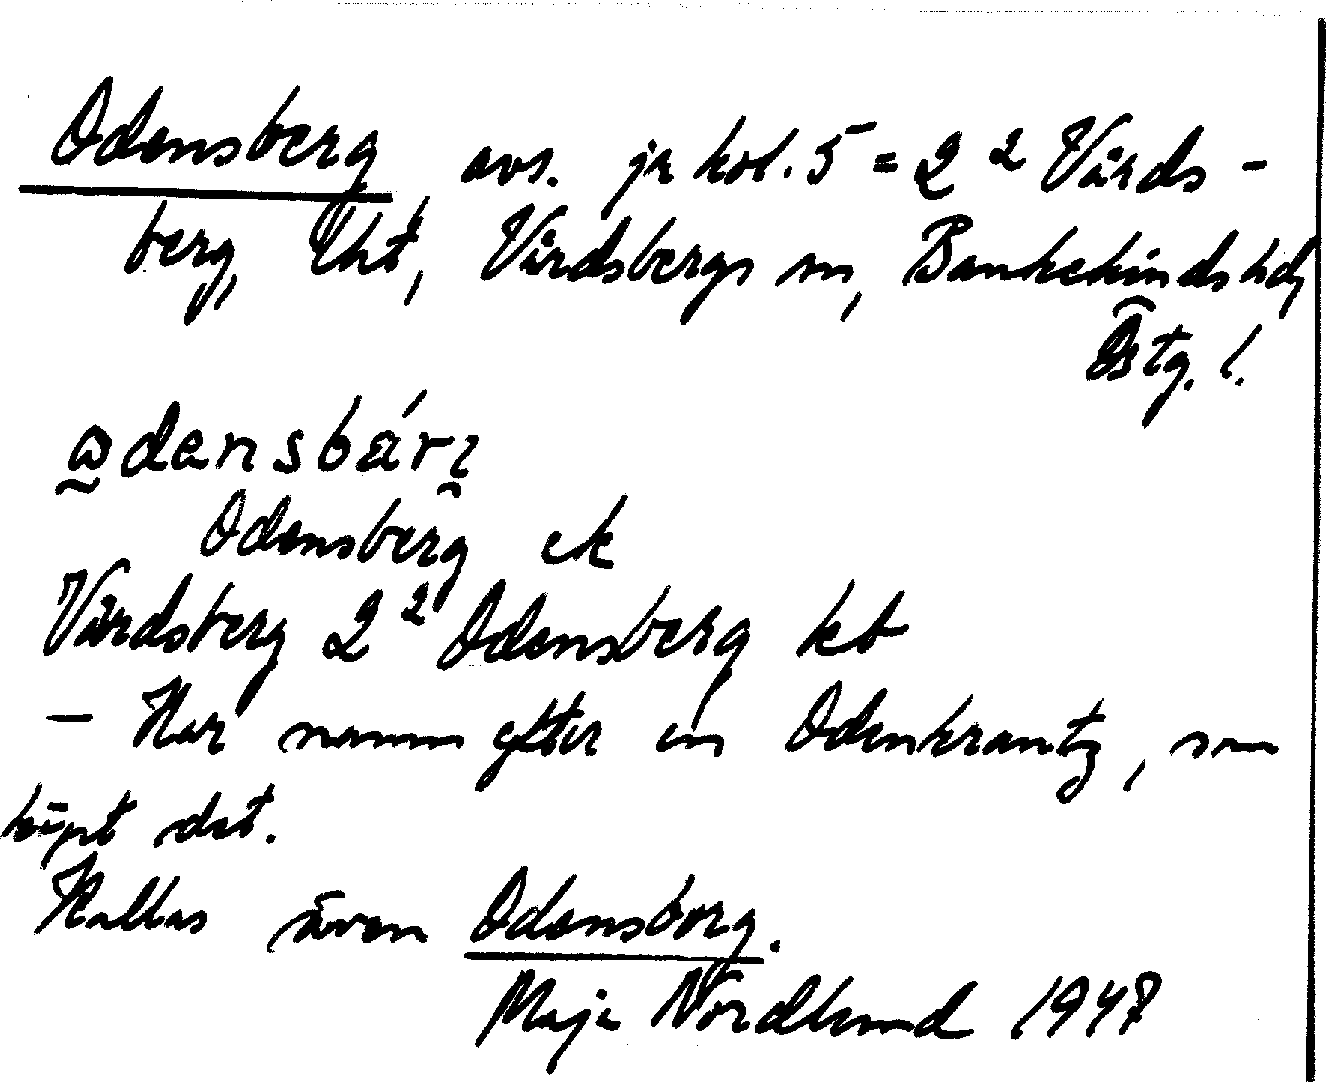 Odensberg, avs. jr kol. 5 = 2² Vårds-
berg, Lht, Vårdsbergs sn, Bankekinds hd,
Östg. l.
odensbárʒ
Odensberg ek
Vårdsberg 2² Odensberg kb
– Har namn efter en Odenkrantz, som
köpt det.
Kallas även Odensborg.
Maja Nordlund 1947